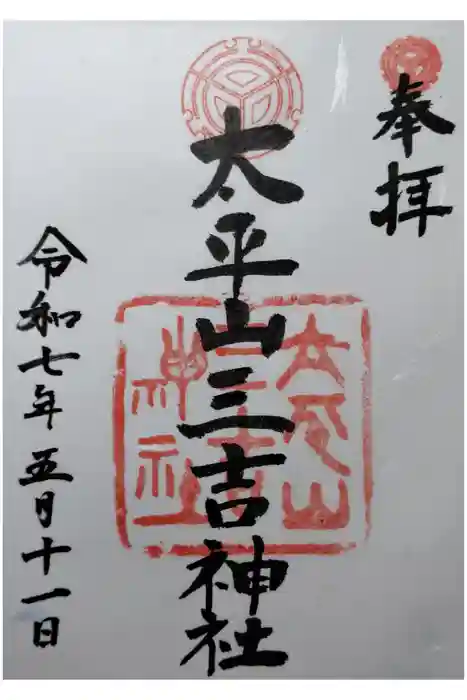 奉拝
太平山三吉神社
令和七年五月十一日
太平山
三吉
神社